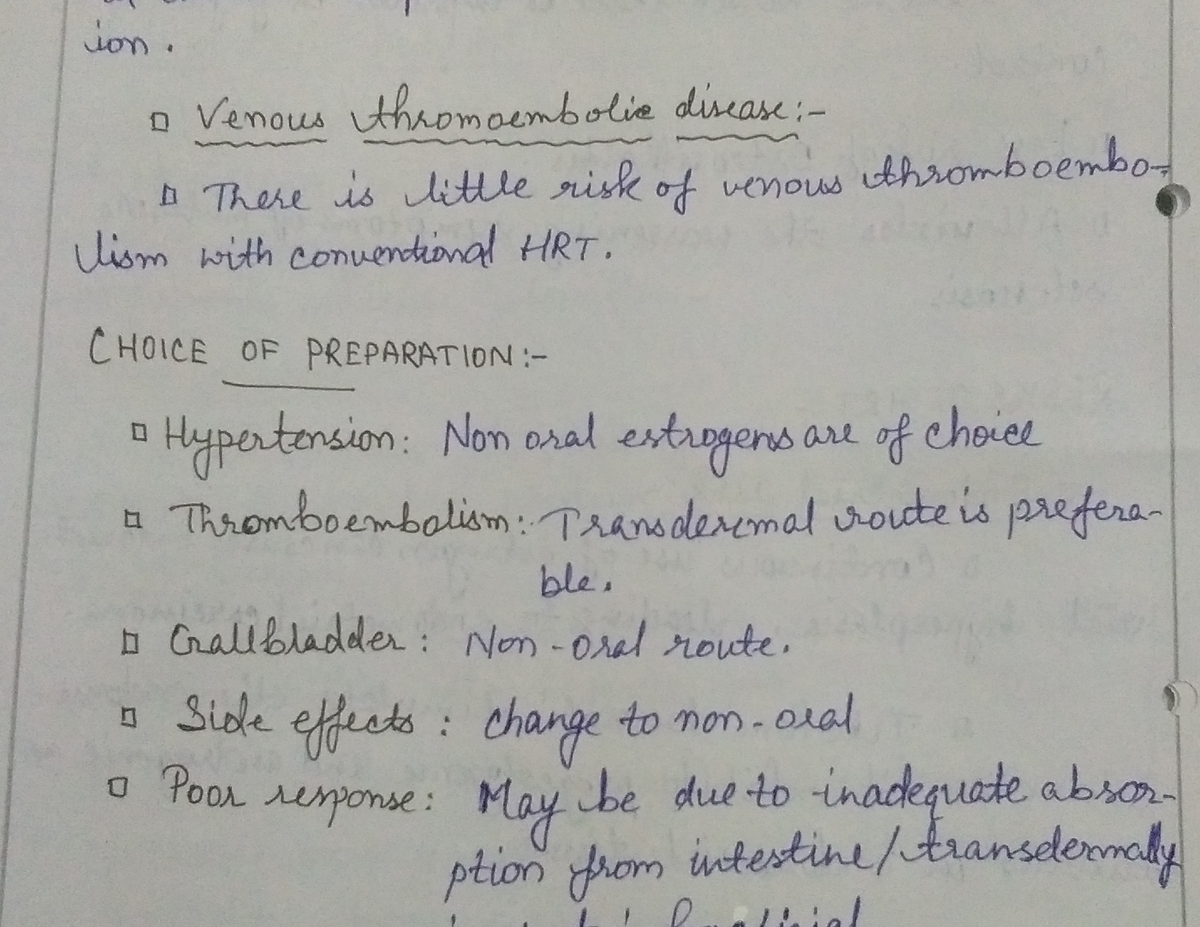 ion.
▯ Venous thromoembolic disease:-
▯ There is little risk of venous thromboembo-
lism with conventional HRT.
CHOICE OF PREPARATION:-
▯ Hypertension: Non oral estrogens are of choice
▯ Thromboembolism: Transdermal route is prefera-
ble.
▯ Gallbladder: Non-oral route.
▯ Side effects: change to non-oral
▯ Poor response: May be due to inadequate absor-
ption from intestine/transdermally